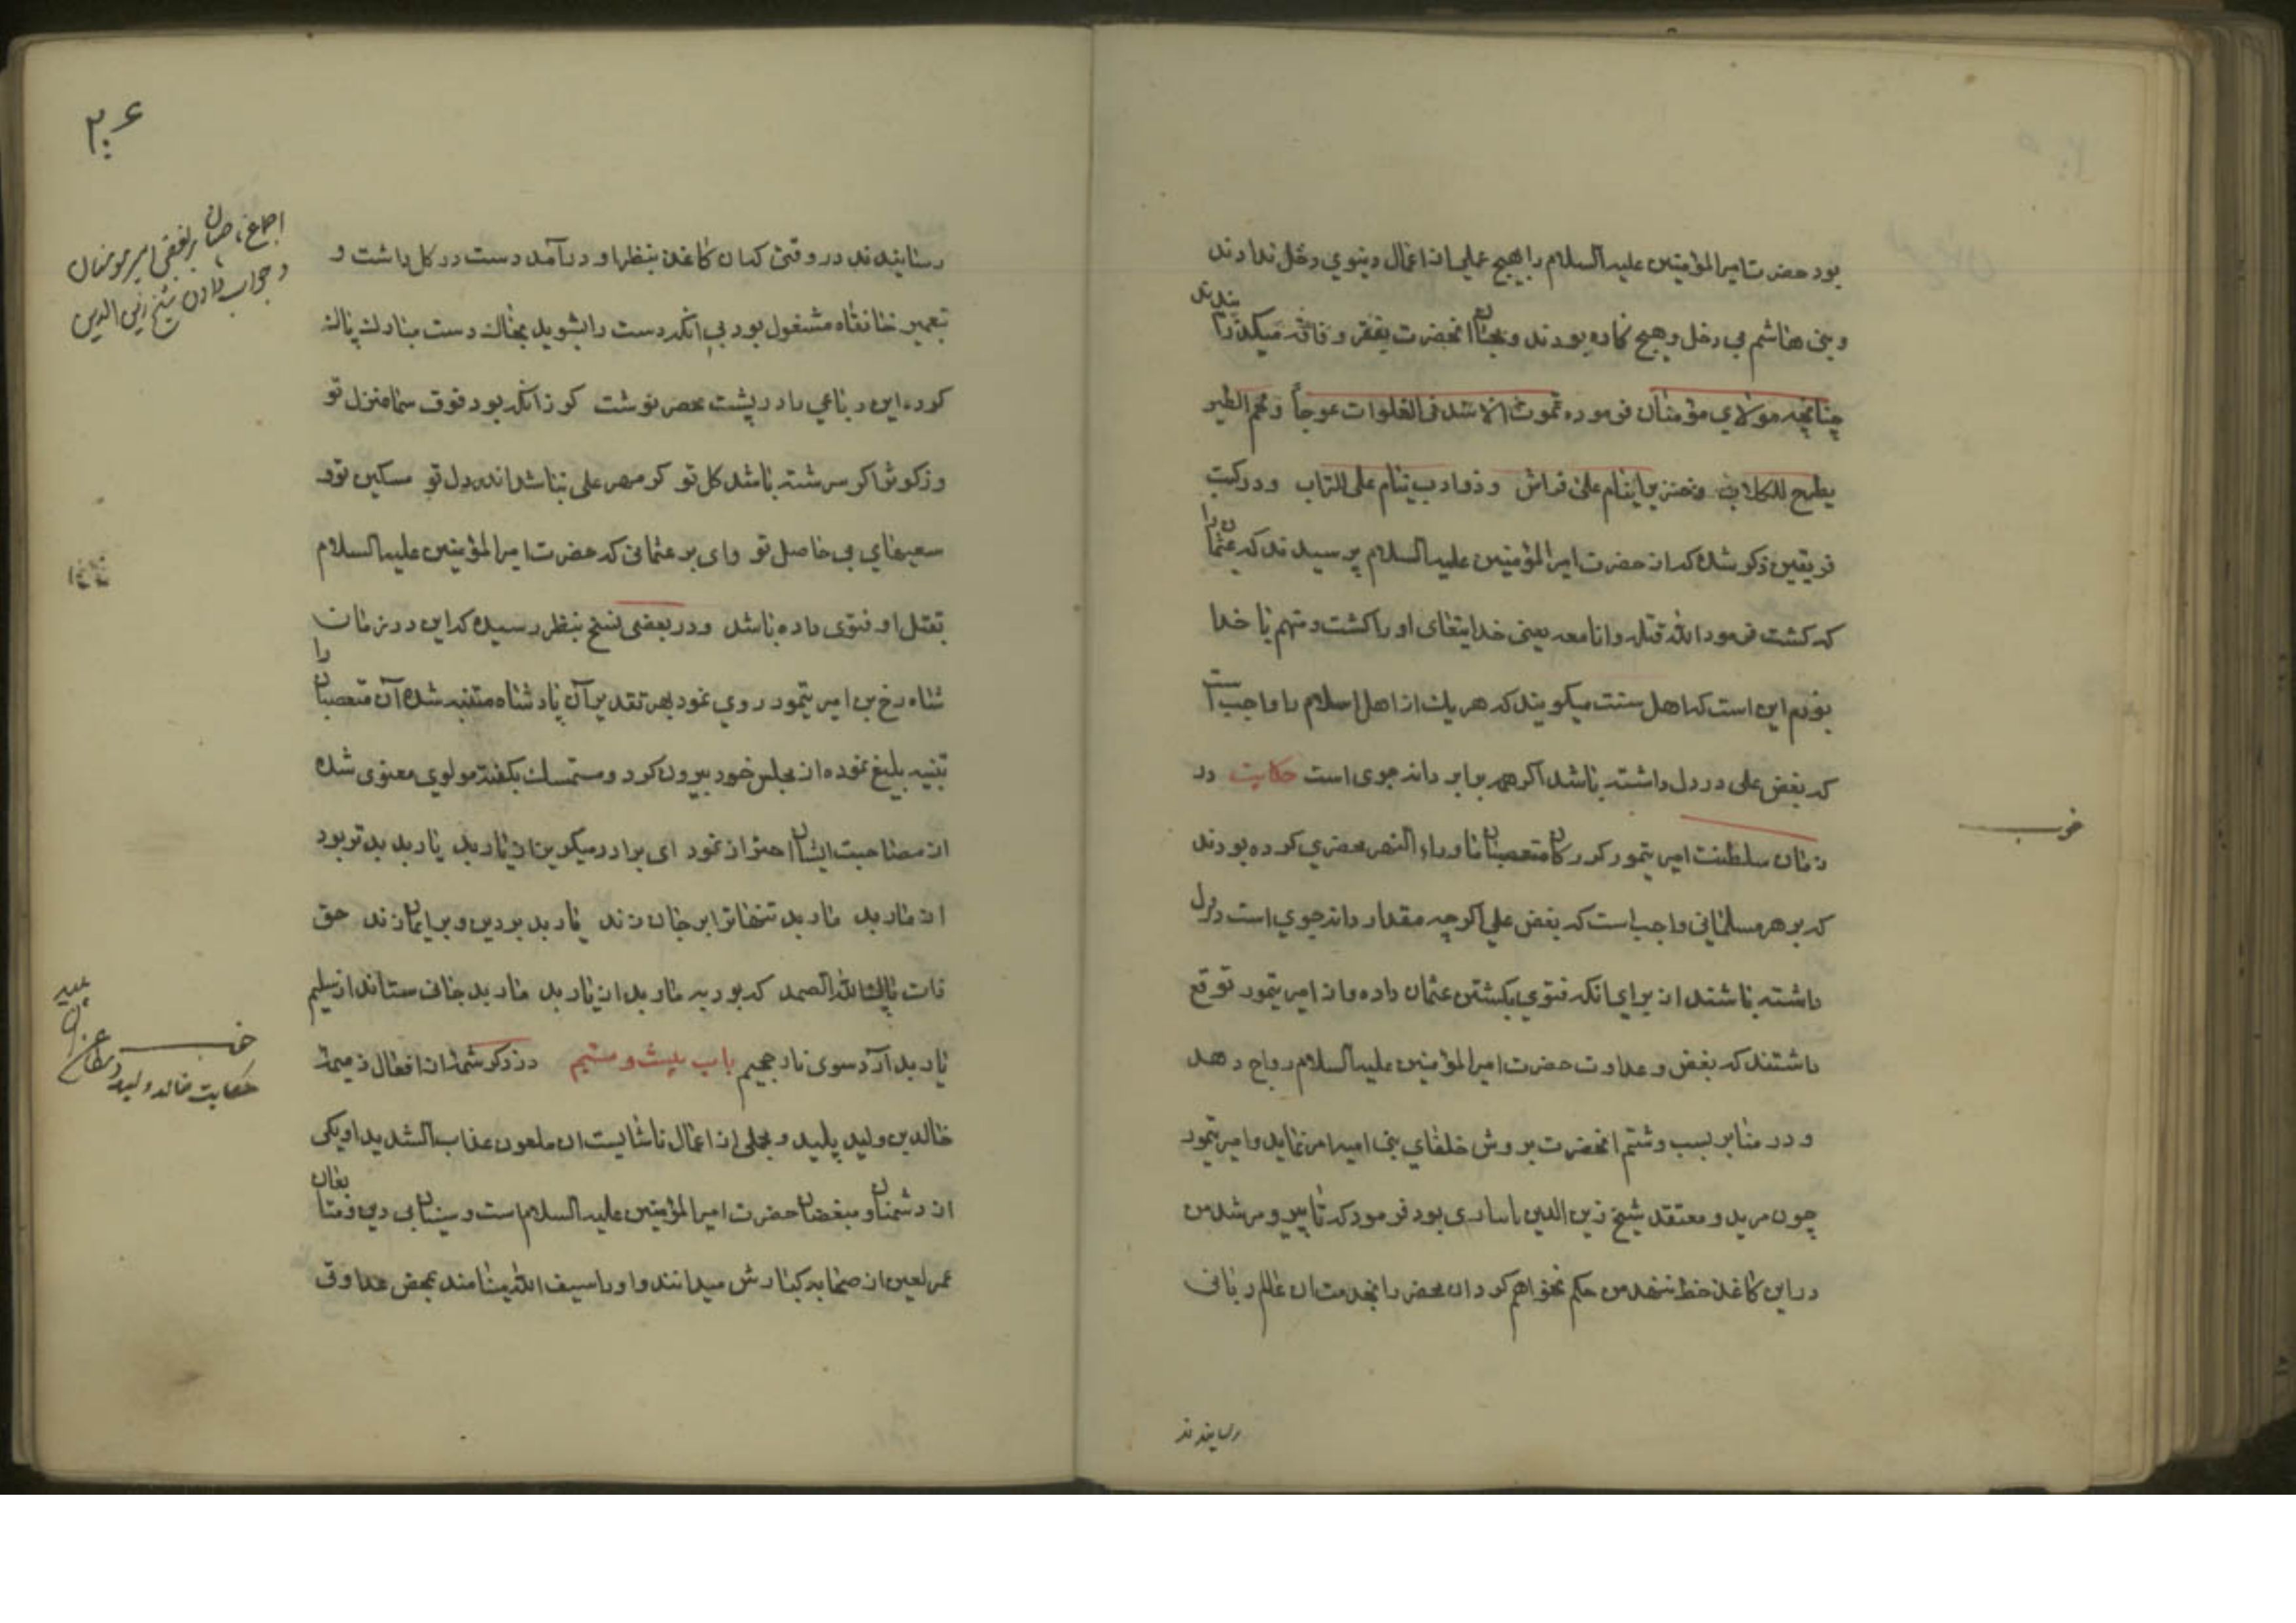 بود حضرت امیرالمؤمنین علیه السلام را بهیچ عملی از اعمال دینوی دخل ندادند
و بنی هاشم بی دخل و هیچ کاره بودند و محبان آنحضرت بفقر و فاقه میکذرانیدند
چنانچه مولای مؤمنان فرموده تموت الاسد فی الفلوات جوعاً و لحم الطیر
یطرح للکلاب و خنزیر ینام علی فراش و ذوادب ینام علی التراب و در کتب
فریقین ذکر شده که از حضرت امیرالمؤمنین علیه السلام پرسیدند که عثمان را
که کشت فرمود الله قتله و انا معه یعنی خدایتعالی او را کشت و منهم با خدا
بودم این است که اهل سنت میکویند که هر یک از اهل اسلام را واجب است
که بغض علی در دل داشته باشد اکر همه برابر دانه جوی است حکایت در
زمان سلطنت امیر تیمور کورکان متعصبان ماوراء النهر محضری کرده بودند
که بر هر مسلمانی واجب است که بغض علی اکرچه مقدار دانه جوی است در دل
داشته باشند از برای انکه فتوی بکشتن عثمان داده و از امیر تیمور توقع
داشتند که بغض و عداوت حضرت امیرالمؤمنین علیه السلام رواج دهد
و در منابر بسب و شتم انحضرت بروش خلفای بنی امیه امر نماید و امیر تیمور
چون مرید و معتقد شیخ زین الدین بود فرمود که تا پیر و مرشد من
در این کاغذ خط ننهد من حکم نخواهم کرد ان محضر را بخدمت ان عالم ربانی
رسانیدند
خوب
۲۰۶
رسانیدند در وقتی که ان کاغذ بنظر او درآمد دست در کل داشت و
بتعمیر خانقاه مشغول بود بی انکه دست را بشوید بهمان دست مبارک پاک
کرده این رباعی را در پشت محضر نوشت کر زانکه بود فوق سما منزل تو
وز کوثر اکر سرشته باشد کل تو کر مهر علی نباشد اندر دل تو مسکین تو و
سعیهای بی حاصل تو وای بر عثمانی که حضرت امیرالمؤمنین علیه السلام
بقتل او فتوی داده باشد و در بعضی نسخ بنظر رسیده که این در زمان
شاه رخ بن امیر تیمور روی نمود بهر تقدیر آن پادشاه متنبه شده آن متعصبان را
تنبیه بلیغ نموده از مجلس خود بیرون کرد و متمسک بکفته مولوی معنوی شده
از مصاحبت ایشان احتراز نمود ای برادر میکریز از یار بد یار بد بدتر بود
از مار بد مار بد تنها ترا بر جان زند یار بد بر دین و بر ایمان زند حق
ذات پاک الله الصمد که بود به مار بد از یار بد مار بد جانی ستاند از سلیم
یار بد آرد سوی نار جحیم باب بیست و ششم در ذکر شمهٔ از افعال ذمیمهٔ
خالد بن ولید پلید و مجملی از اعمال ناشایست ان ملعون عذاب الشدید او یکی
از دشمنان و مبغضان حضرت امیرالمؤمنین علیه السلام است و سنیان بی دین و متابعان
عمر لعین از صحابه کبارش میدانند و او را سیف الله مینامند بمحض عداوتی
اجماع بر بغض امیر مومنان
و جواب دادن شیخ زین الدین
خوب
حکایت خالد ولید